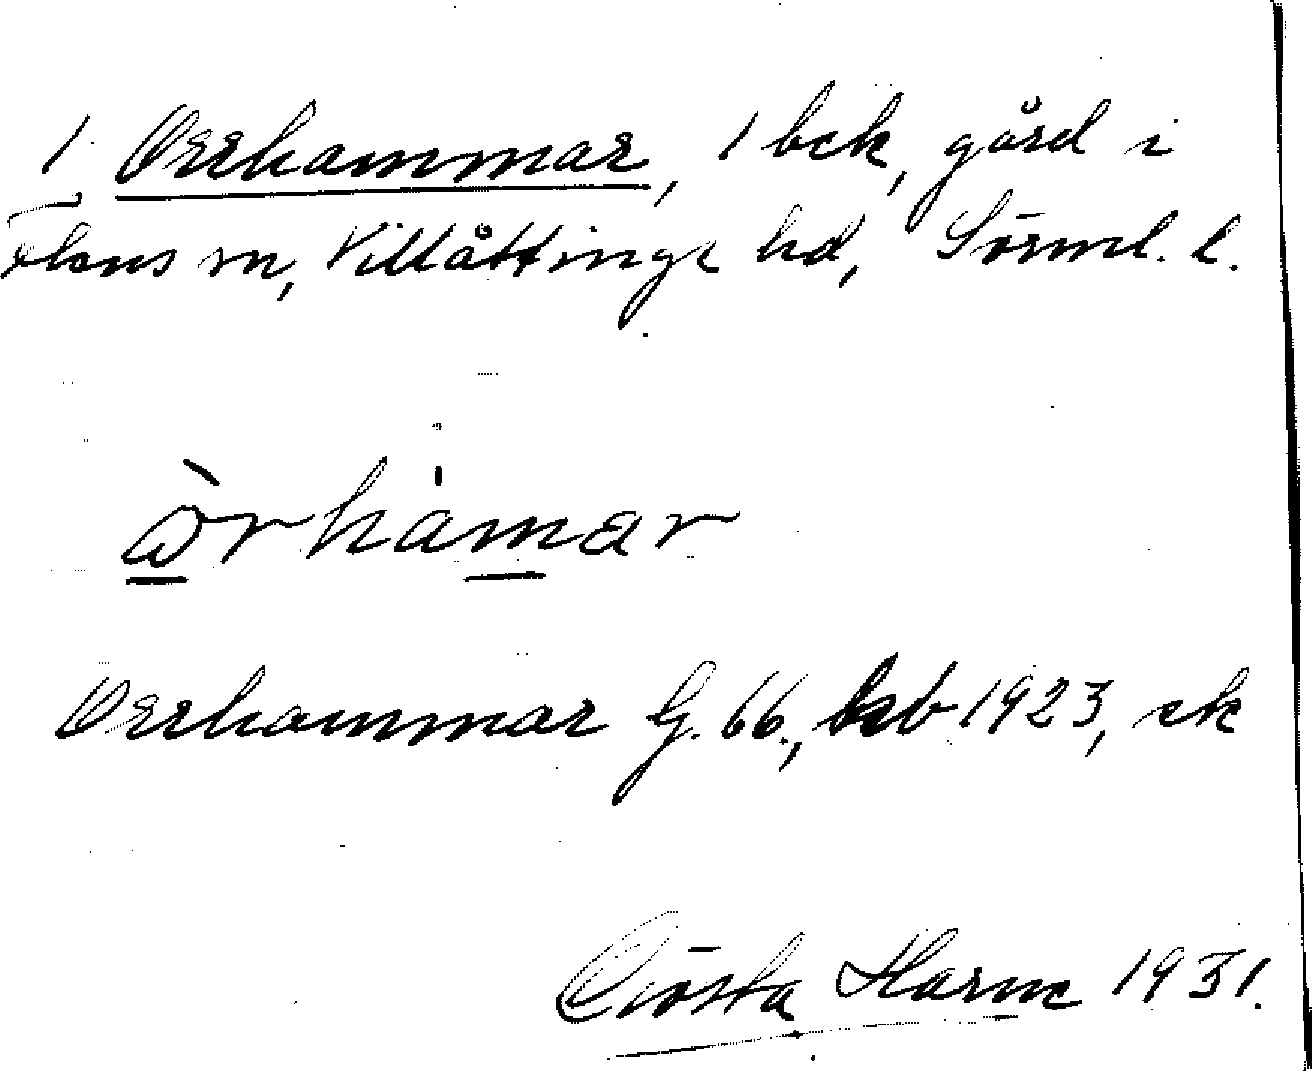 1. Orrhammar, 1 bck, gård i
Flens sn, Villåttinge hd, Sörml. l.
òrhámar
Orrhammar G. 66., kb 1923, ek
Gösta Harne 1931.